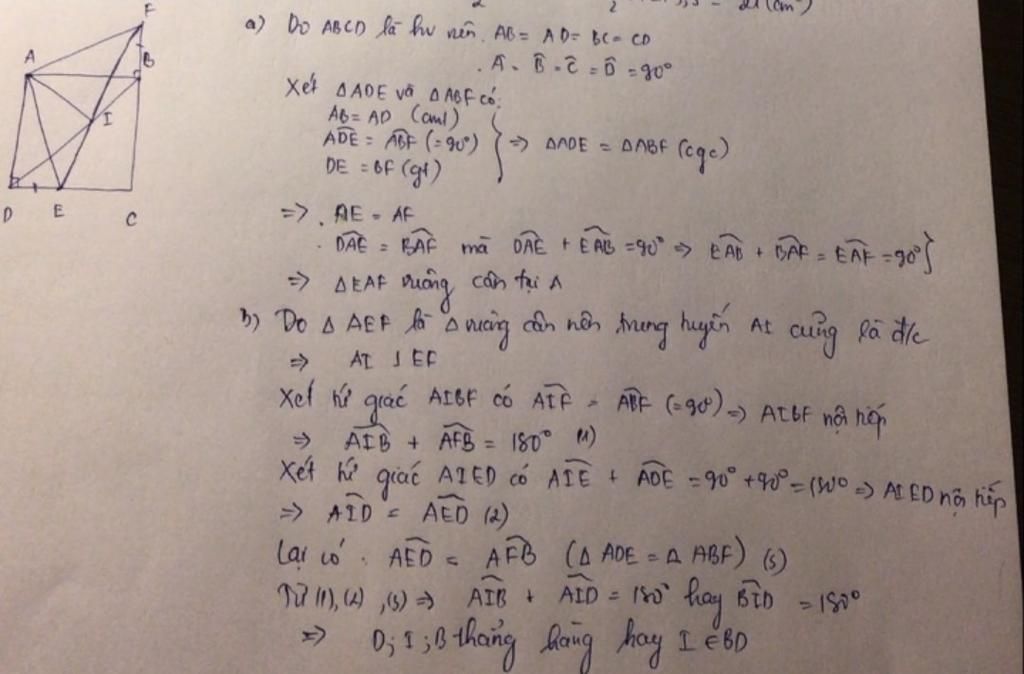 a) Do ABCD là hv nên. AB = AD = BC = CD
. Â = B̂ = Ĉ = D̂ = 90°
Xét ΔADE và ΔABF có:
AB = AD (cmt)
ADE = ABF (= 90°)
DE = BF (gt)
=> ΔADE = ΔABF (cgc)
=> . AE = AF
. DAE = BAF mà DAE + EAB = 90° => EAB + BAF = EAF = 90° }
=> ΔEAF vuông cân tại A
b) Do Δ AEF là Δ vuông cân nên trung tuyến AI cũng là đ/c
=> AI ⊥ EF
Xét tứ giác AIBF có AIF = ABF (= 90°) => AIBF nội tiếp
=> AIB + AFB = 180° (1)
Xét tứ giác AIED có AIE + ADE = 90° + 90° = 180° => AIED nội tiếp
=> AID = AED (2)
Lại có . AED = AFB (Δ ADE = Δ ABF) (3)
Từ (1), (2), (3) => AIB + AID = 180° hay BID = 180°
=> D; I; B thẳng hàng hay I ∈ BD
F
A
B
I
D
E
C